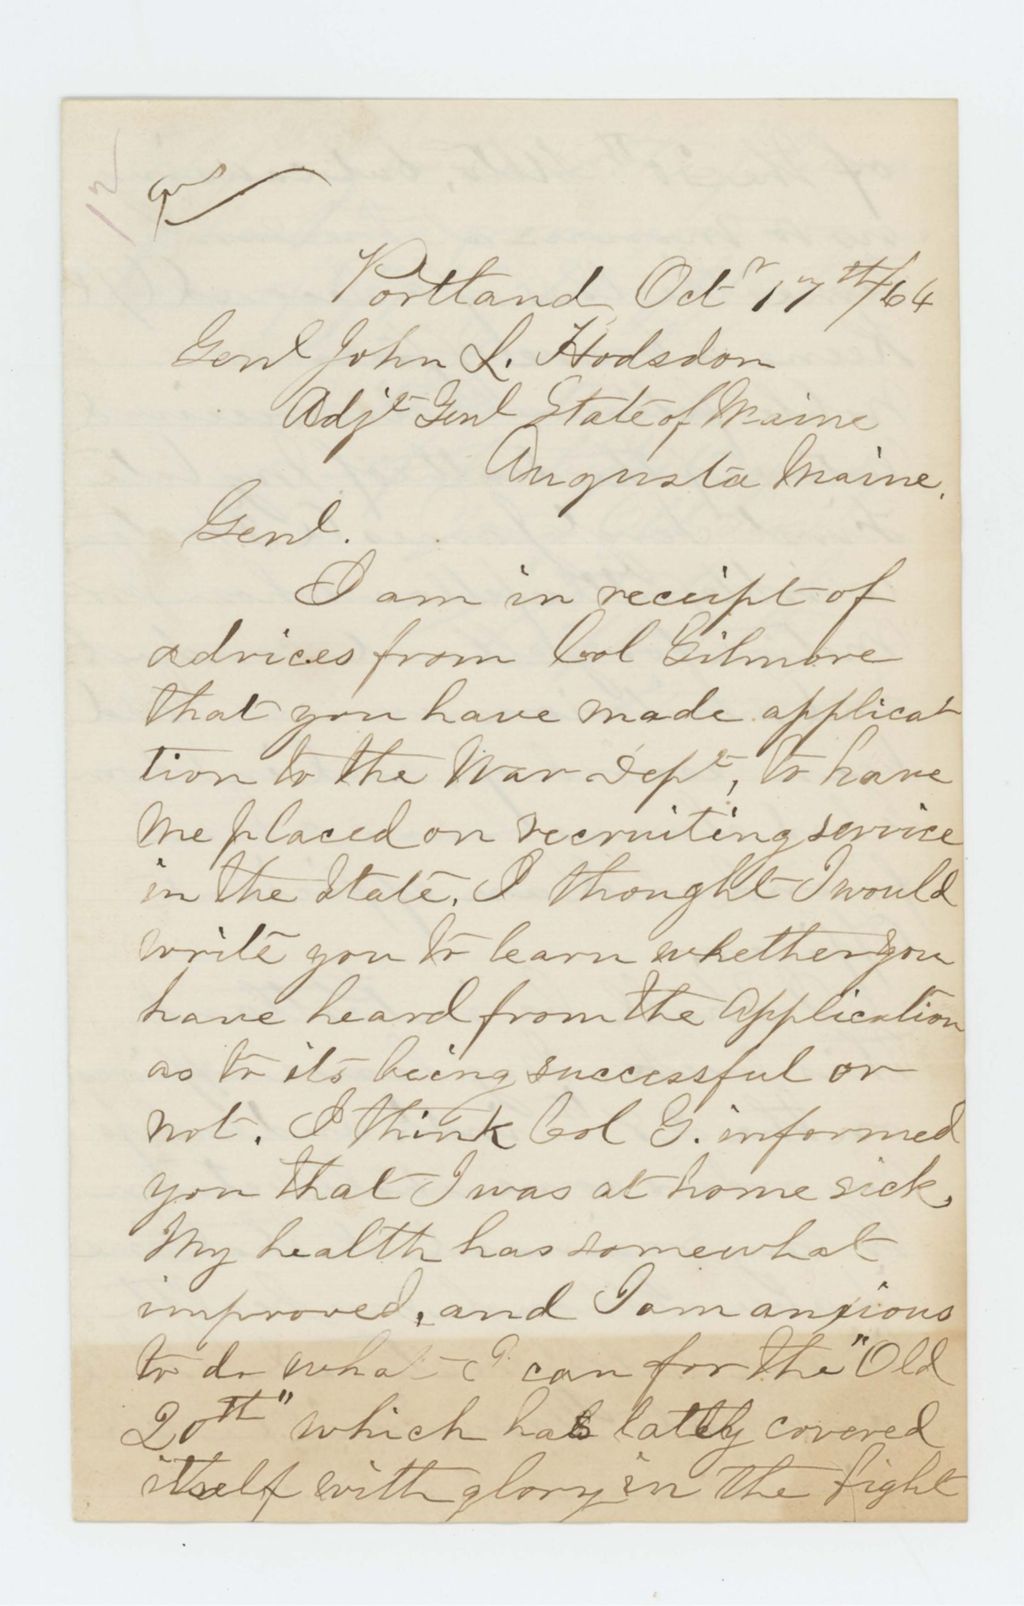 12
Portland, Octr 17th/64
Genl John L. Hodsdon
Adjt Genl State of Maine
Augusta Maine.
Genl.
I am in receipt of
advices from Col Gilmore
that you have made applicat
tion to the War Dept, to have
me placed on recruiting service
in the State. I thought I would
write you to learn whether you
have heard from the application
as to its being successful or
not. I think Col G. informed
you that I was at home sick,
My health has somewhat
improved, and I am anxious
to do what I can for the "Old
20th" which has lately covered
itself with glory in the fight